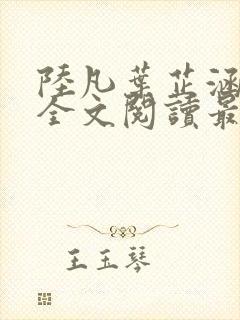 陸凡葉芷涵
全文閱讀最
王玉琴